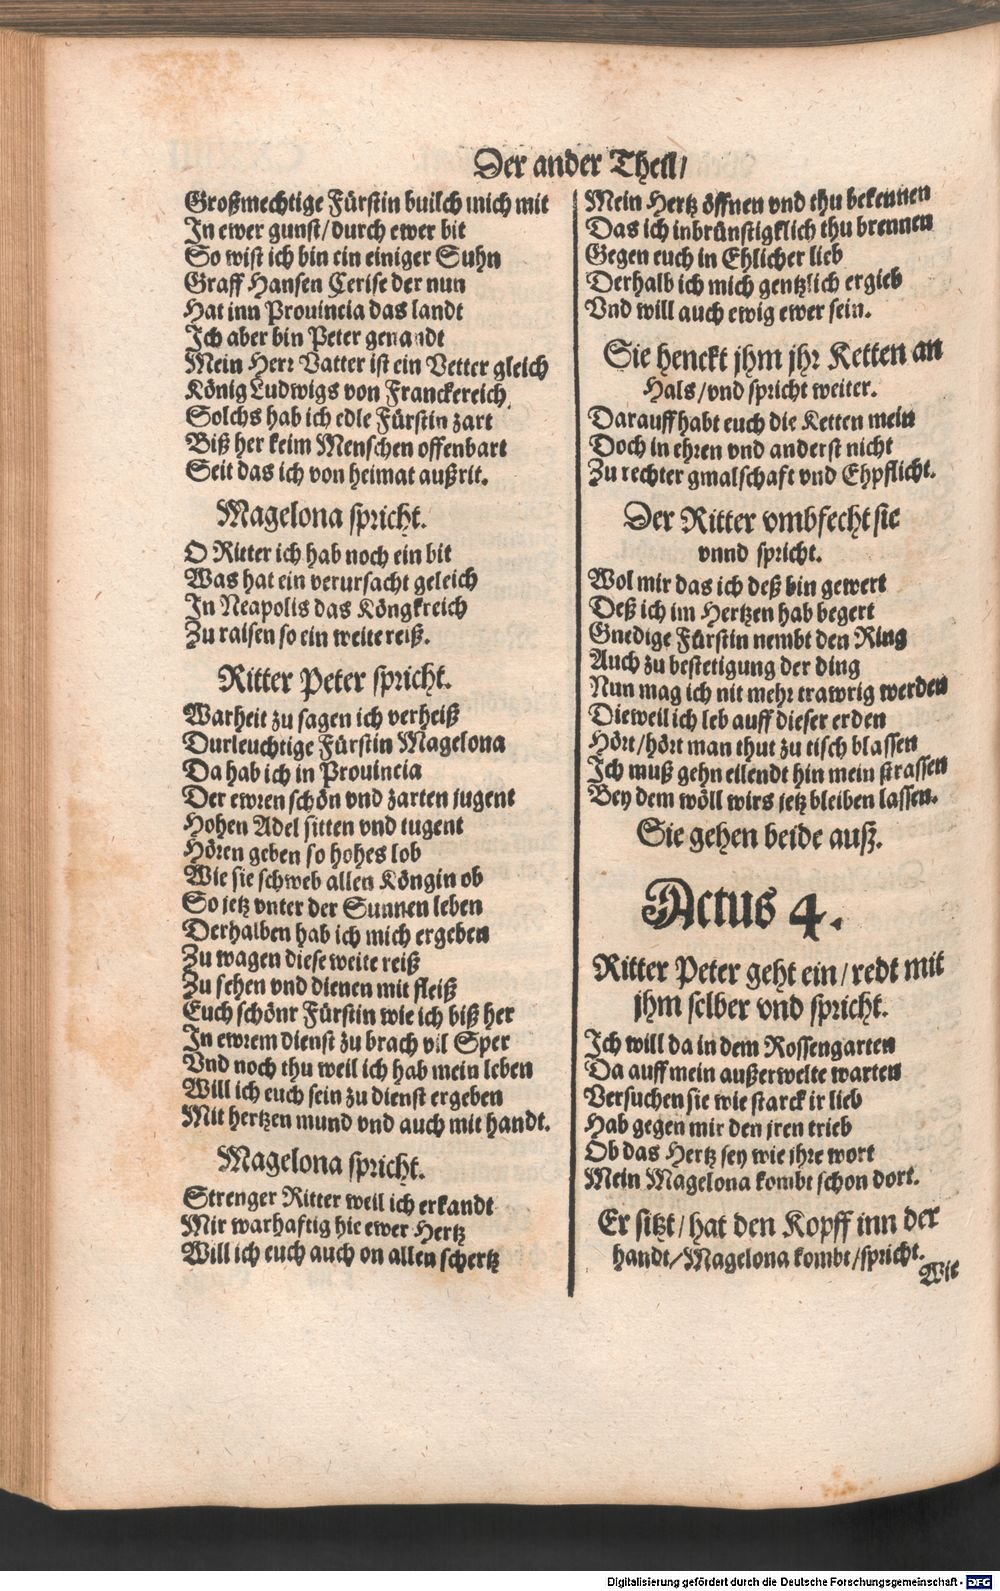 Der ander Theil/
Großmechtige Fürstin builch mich mit
In ewer gunst/durch ewer bit
So wist ich bin ein einiger Suhn
Graff Hansen Cerise der nun
Hat inn Prouintia das landt
Ich aber bin Peter genandt
Mein Herr Vatter ist ein Vetter gleich
König Ludwigs von Franckereich
Solchs hab ich edle Fürstin zart
Biß her keim Menschen offenbart
Seit das ich von heimat außrit.
Magelona spricht.
O Ritter ich hab noch ein bit
Was hat ein verursacht geleich
In Neapolis das Köngkreich
Zu raisen so ein weite reiß.
Ritter Peter spricht.
Warheit zu sagen ich verheiß
Durleuchtige Fürstin Magelona
Da hab ich in Prouincia
Der ewren schön vnd zarten jugent
Hohen Adel sitten vnd tugent
Hören geben so hohes lob
Wie sie schweb allen Köngin ob
So jetz vnter der Sunnen leben
Derhalben hab ich mich ergeben
Zu wagen diese weite reiß
Zu sehen vnd dienen mit fleiß
Euch schönr Fürstin wie ich biß her
In ewrem dienst zu brach vil Sper
Vnd noch thu weil ich hab mein leben
Will ich euch sein zu dienst ergeben
Mit hertzen mund vnd auch mit handt.
Magelona spricht.
Strenger Ritter weil ich erkandt
Mir warhaftig hie ewer Hertz
Will ich euch auch on allen schertz
Mein Hertz öffnen vnd thu bekennen
Das ich inbrünstigklich thu brennen
Gegen euch in Ehlicher lieb
Derhalb ich mich gentzlich ergieb
Vnd will auch ewig ewer sein.
Sie henckt jhm jhr Ketten an
Hals/vnd spricht weiter.
Darauff habt euch die Ketten mein
Doch in ehren vnd anderst nicht
Zu rechter gmalschaft vnd Ehpflicht.
Der Ritter vmbfecht sie
vnnd spricht.
Wol mir das ich deß bin gewert
Deß ich im Hertzen hab begert
Gnedige Fürstin nembt den Ring
Auch zu bestetigung der ding
Nun mag ich nit mehr trawrig werden
Dieweil ich leb auff dieser erden
Hört/hört man thut zu tisch blassen
Ich muß gehn eilendt hin mein strassen
Bey dem wöll wirs jetz bleiben lassen.
Sie gehen beide auß.
Actus 4.
Ritter Peter geht ein/redt mit
jhm selber vnd spricht.
Ich will da in dem Rossengarten
Da auff mein außerwelte warten
Versuchen sie wie starck ir lieb
Hab gegen mir den jren trieb
Ob das Hertz sey wie jhre wort
Mein Magelona kombt schon dort.
Er sitzt/hat den Kopff inn der
handt/Magelona kombt/spricht.
Wie
Digitalisierung gefördert durch die Deutsche Forschungsgemeinschaft - DFG